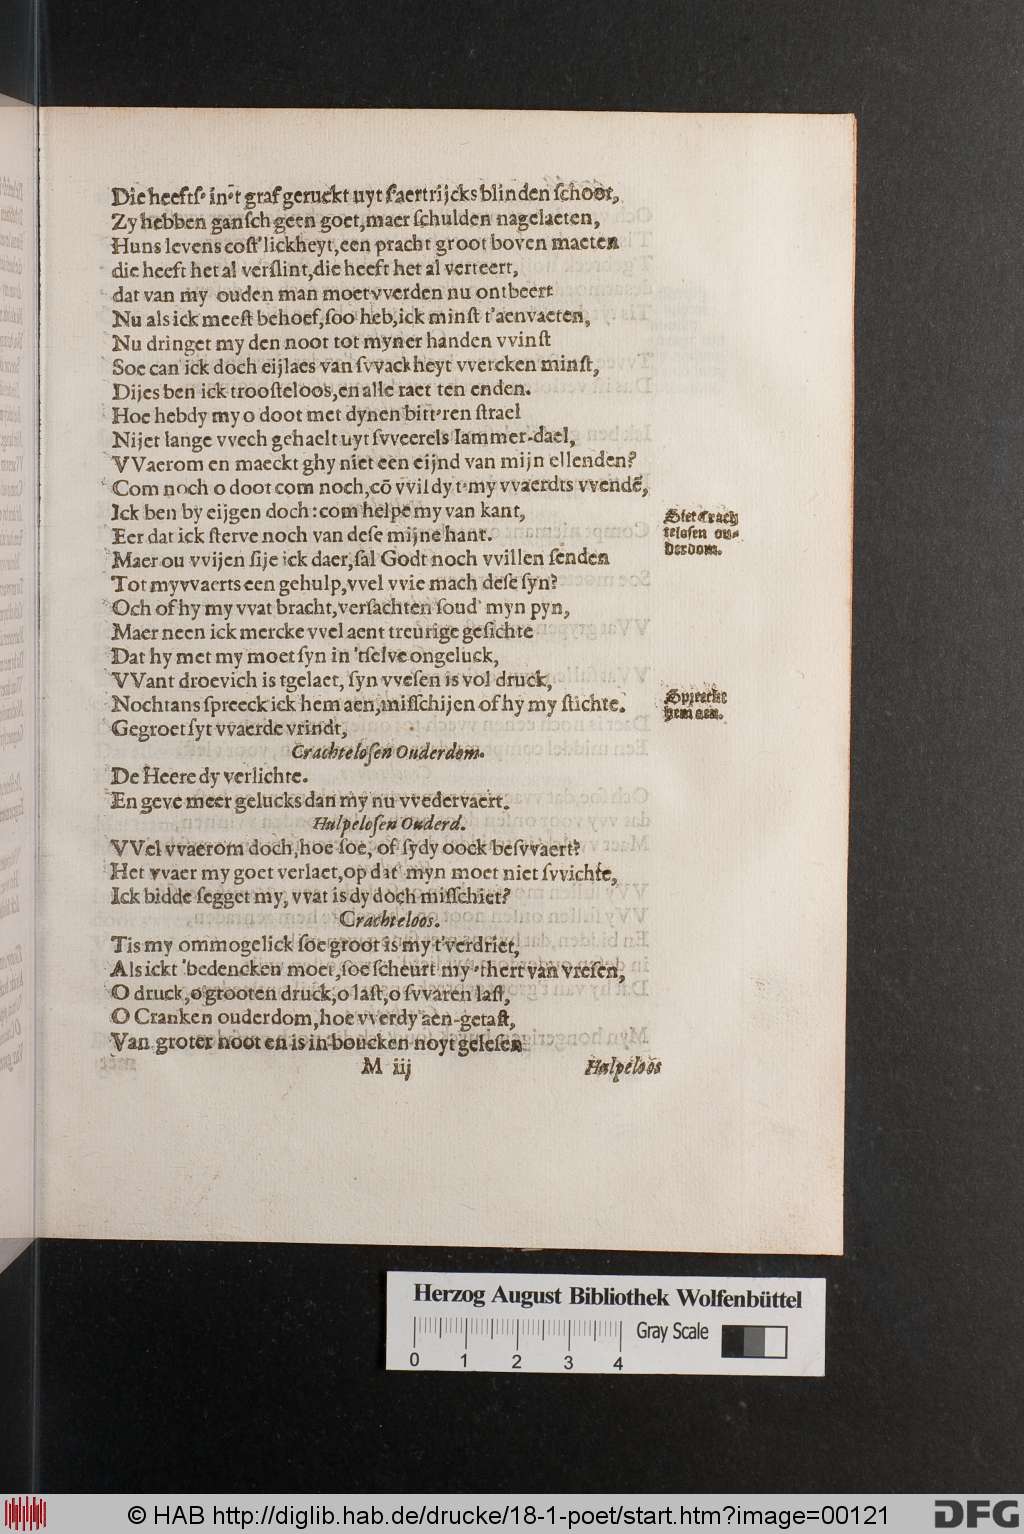 Die heefts' in't graf geruckt uyt s'aertrijcks blinden schoot,
Zy hebben gansch geen goet, maer schulden nagelaeten,
Huns levens cost'lickheyt, een pracht groot boven maeten
die heeft het al verslint, die heeft het al verteert,
dat van my ouden man moet vverden nu ontbeert
Nu als ick meest behoef, soo heb, ick minst t'aenvaeten,
Nu dringet my den noot tot myner handen vvinst
Soe can ick doch eijlaes van svvackheyt vvercken minst,
Dijes ben ick troosteloos, en alle raet ten enden.
Hoe hebdy my o doot met dynen bitt'ren strael
Nijet lange vvech gehaelt uyt svveerels Iammer-dael,
VVaerom en maeckt ghy niet een eijnd van mijn ellenden?
Com noch o doot com noch, cō vvil dy t'my vvaerdts vvendē,
Ick ben by eijgen doch: com helpe my van kant,
Eer dat ick sterve noch van dese mijne hant.
Siet Crach
telosen ou-
derdom.
Maer ou vvijen sije ick daer, sal Godt noch vvillen senden
Tot myvvaerts een gehulp, vvel vvie mach dese syn?
Och of hy my vvat bracht, versachten soud' myn pyn,
Maer neen ick mercke vvel aent treurige gesichte
Dat hy met my moet syn in 'tselve ongeluck,
VVant droevich is tgelaet, syn vvesen is vol druck,
Nochtans spreeck ick hem aen, misschijen of hy my stichte.
Spreeckt
hem aen.
Gegroet syt vvaerde vrindt,
Crachtelosen Ouderdom.
De Heere dy verlichte.
En geve meer gelucks dan my nu vvedervaert.
Hulpelosen Ouderd.
VVel vvaerom doch, hoe soe, of sydy oock besvvaert?
Het vvaer my goet verlaet, op dat myn moet niet svvichte,
Ick bidde segget my, vvat is dy doch misschiet?
Crachteloos.
Tis my ommogelick soe groot is my t'verdriet,
Als ickt 'bedencken moet, soe scheurt my 'thert van vresen,
O druck, o grooten druck, o last, o svvaren last,
O Cranken ouderdom, hoe vverdy aen-getast,
Van groter noot en is in boucken noyt gelesen
M iij
Hulpeloos
Herzog August Bibliothek Wolfenbüttel
Gray Scale
0 1 2 3 4
© HAB http://diglib.hab.de/drucke/18-1-poet/start.htm?image=00121
DFG